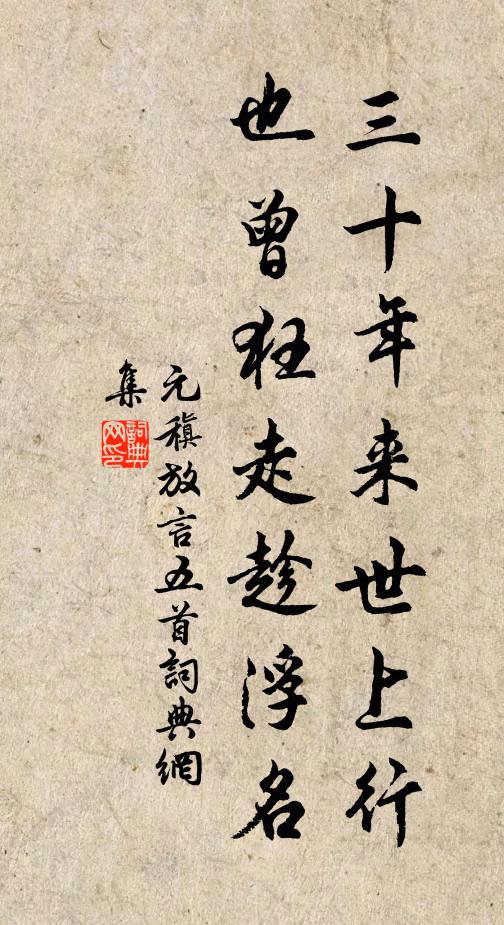 三十年来世上行
也曾狂走趁浮名
元稹放言五首詞典網
集
詞典
网印